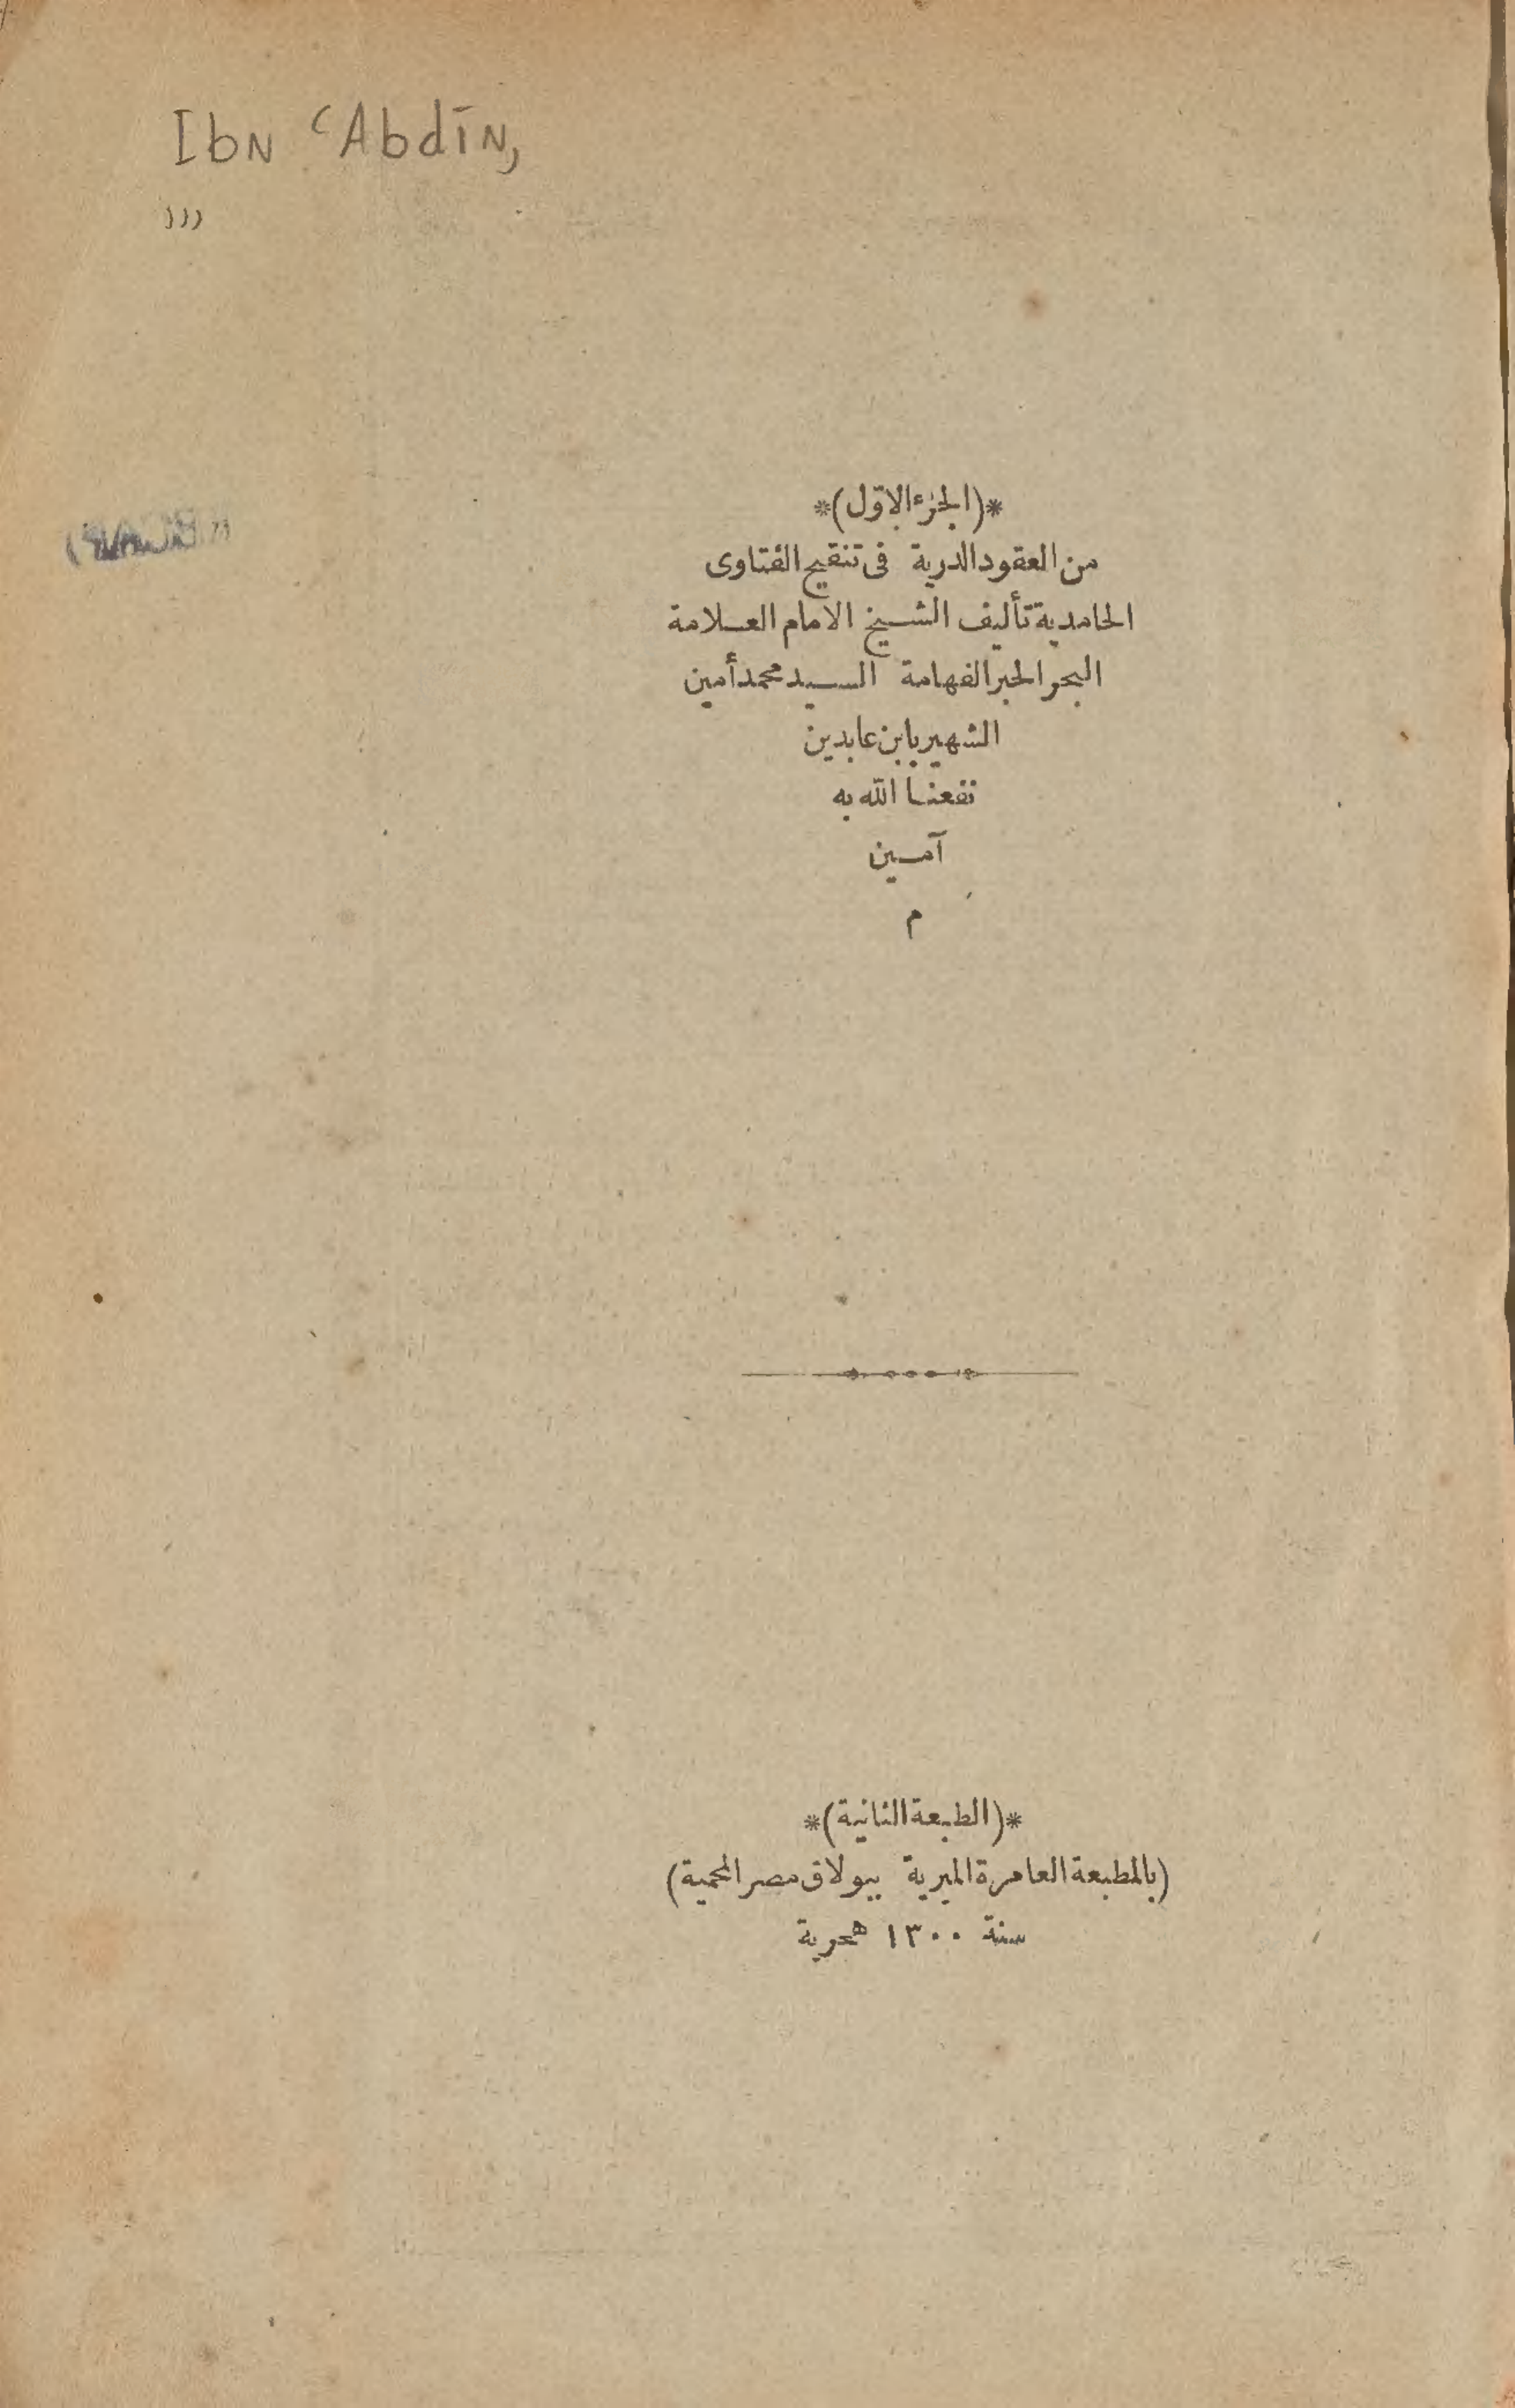 Ibn ʿAbdīn,
*(الجزء الاوّل)*
من العقود الدرية فى تنقيح الفتاوى
الحامدية تأليف الشيخ الامام العلامة
البحر الحبر الفهامة السيد محمد أمين
الشهير بابن عابدين
نفعنا الله به
آمين
م
*(الطبعة الثانية)*
(بالمطبعة العامرة الميرية ببولاق مصر المحمية)
سنة ١٣٠٠ هجرية